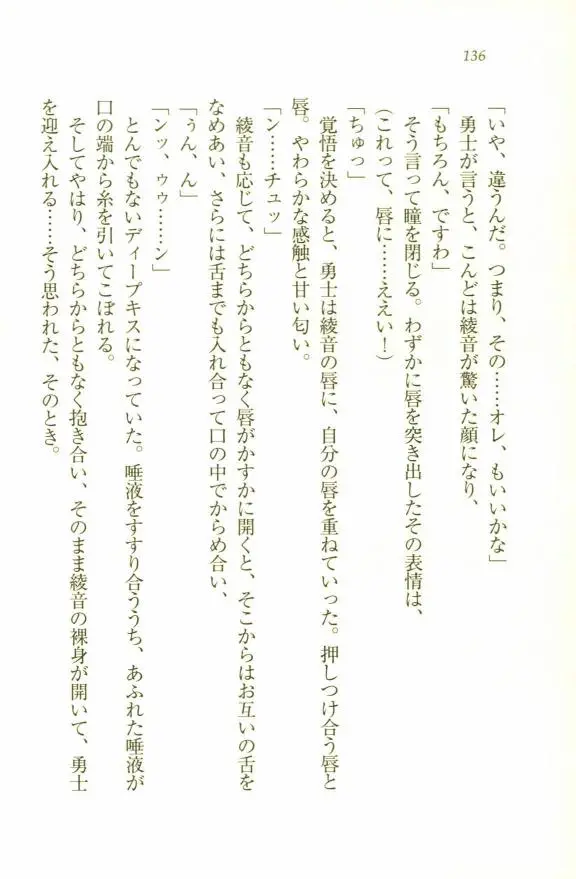 136
「いや、違うんだ。つまり、その……オレ、もいいかな」
勇士が言うと、こんどは綾音が驚いた顔になり、
「もちろん、ですわ」
そう言って瞳を閉じる。わずかに唇を突き出したその表情は、
(これって、唇に……ええい！)
「ちゅっ」
覚悟を決めると、勇士は綾音の唇に、自分の唇を重ねていった。押しつけ合う唇と
唇。やわらかな感触と甘い匂い。
「ン……チュッ」
綾音も応じて、どちらからともなく唇がかすかに開くと、そこからはお互いの舌を
なめあい、さらには舌までも入れ合って口の中でからめ合い、
「ぅん、ん」
「ンッ、ゥゥ……ン」
とんでもないディープキスになっていた。唾液をすすり合ううち、あふれた唾液が
口の端から糸を引いてこぼれる。
そしてやはり、どちらからともなく抱き合い、そのまま綾音の裸身が開いて、勇士
を迎え入れる……そう思われた、そのとき。